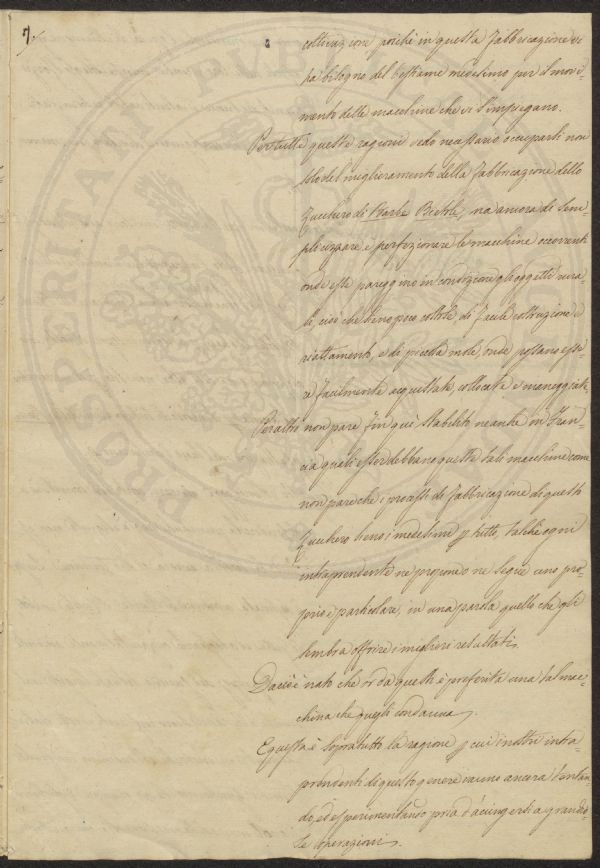 7.
coltivazione poichè in questa fabbricazione vi
ha bisogno del bestiame medesimo per il movi-
mento delle macchine che vi s'impiegano.
Per tutte queste ragioni vedo necessario occuparsi non
solo del miglioramento della fabbricazione dello
Zucchero di Barbe Bietole, ma ancora di sem-
plicizzare e perfezionare le macchine occorrenti
onde esse pareggino in condizione gli oggetti rura-
li, cioè che sieno poco costose di facile costruzione e
riattamento, e di piccola mole, onde possano esse-
re facilmente acquistate, collocate e maneggiate
Peraltro non pare fin quì stabilito neanche in Fran-
cia quali esser debbano queste tali macchine come
non pare che i processi di fabbricazione di questo
Zucchero sieno i medesimi p tutto, talchè ogni
intraprendente ne propone o ne segue uno pro-
prio e particolare, in una parola quello che gli
sembra offrire i migliori resultati.
Da ciò è nato che or da questi è preferita una tal mac-
china che quegli condanna.
E questa è sopratutto la ragione p cui i nostri intra-
prendenti di questo genere vanno ancora tentan-
do, ed esperimentando pria d'accingersi a grandio-
se operazioni.
PROSPERITATI PVBLICAE